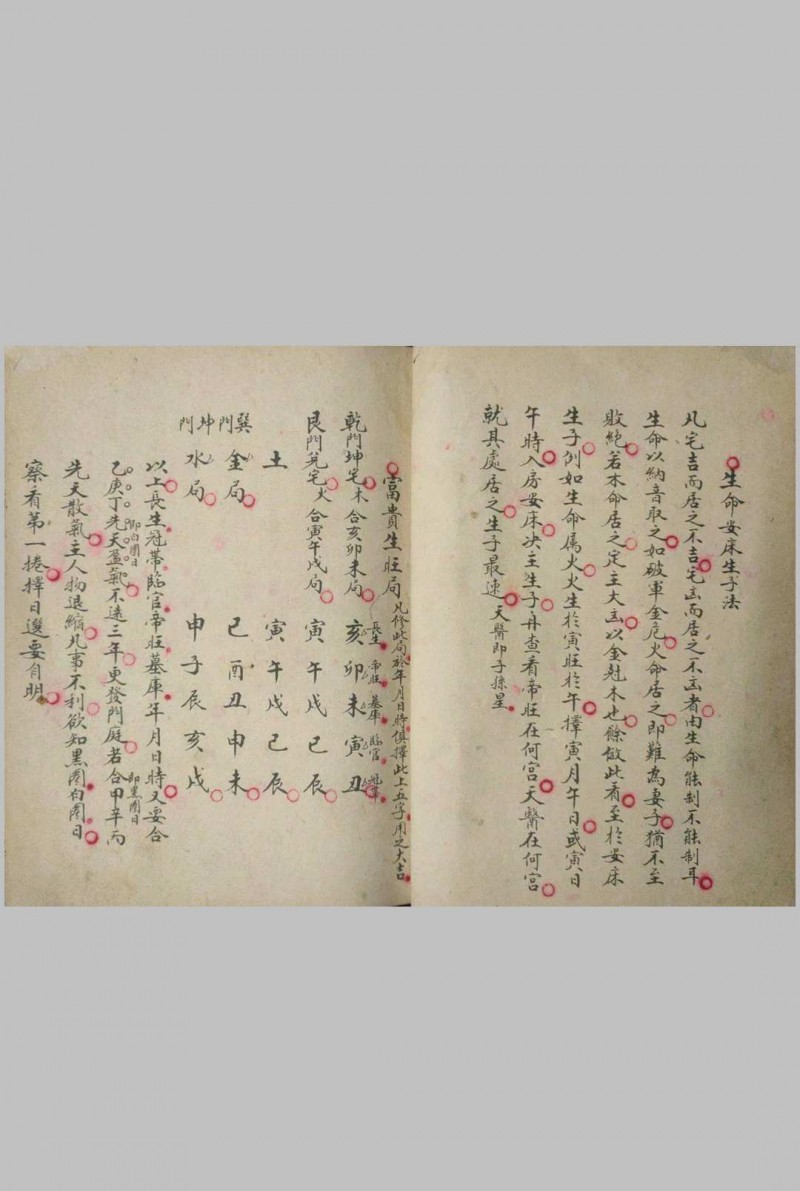 生命安床生子法
凡宅吉而居之不吉宅凶而居之不凶者由生命能制不能制耳
生命以納音取之如破軍金危火命居之即難為妻子猶不至
敗絶若木命居之定主大凶以金尅木也餘倣此看至於安床
生子例如生命属火火生於寅旺於午擇寅月午日或寅日
午時入房安床决主生子再查看帝旺在何宮天醫在何宮
就其處居之生子最速天醫即子孫星
富貴生旺局凡修此局於年月日時俱擇此上五字用之大吉
長生 帝旺 墓庫 臨官 冠帶
乾門坤宅木合亥卯未局 亥卯未寅丑
艮門兌宅火合寅午戌局 寅午戌巳辰
土 寅午戌巳辰
巽門金局 巳酉丑申未
坤門水局 申子辰亥戌
以上長生冠帶臨官帝旺墓庫年月日時又要合
乙庚丁先天盈氣即白圈日不遠三年更發門庭若合甲辛丙即黑圈日
先天散氣主人物退縮凡事不利欲知黑圈白圈日
察看第一捲擇日選要自明